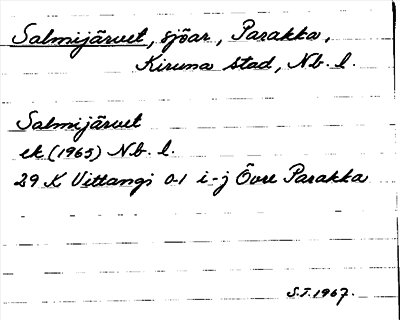 Salmijärvet, sjöar, Parakka,
Kiruna stad, Nb. l.
Salmijärvet
ek (1965) Nb. l.
29 K Vittangi 0-1 i-j Övre Parakka
S.T. 1967.